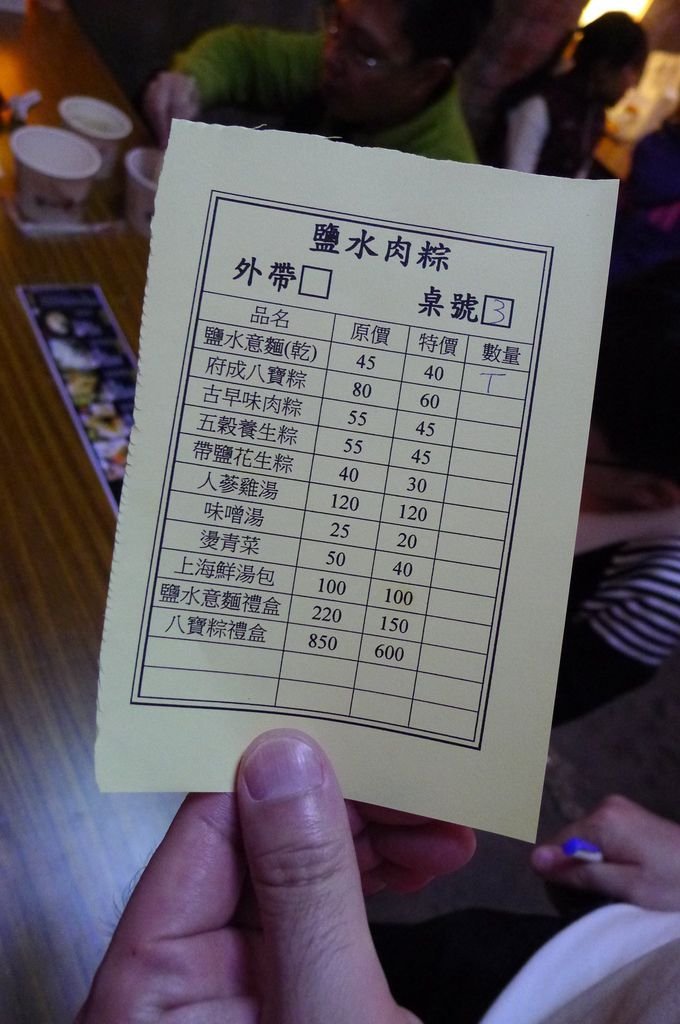 鹽水肉粽
外帶□
桌號 3
品名 原價 特價 數量
鹽水意麵(乾) 45 40 T
府成八寶粽 80 60
古早味肉粽 55 45
五穀養生粽 55 45
帶鹽花生粽 40 30
人蔘雞湯 120 120
味噌湯 25 20
燙青菜 50 40
上海鮮湯包 100 100
鹽水意麵禮盒 220 150
八寶粽禮盒 850 600